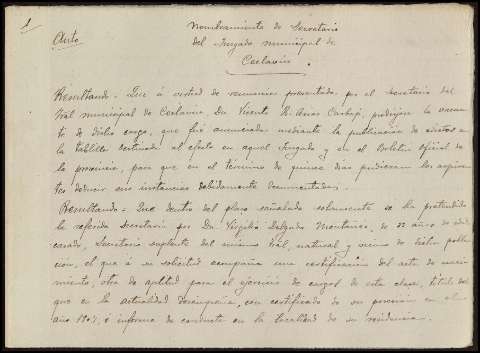 1
Auto
Nombramiento de Secretario
del Juzgado municipal de
Ceclavín.
Resultando. Que á virtud de renuncia presentada por el Secretario del
municipal de Ceclavín, Dn. Vicente R. Arias Carbajo, produjose la vacan-
te de dicho cargo, que fué anunciada mediante la publicación de edictos en
la tablilla destinada al efecto en aquel Juzgado y en el Boletín oficial de
la provincia, para que en el término de quince días pudieran los aspiran-
tes deducir sus instancias debidamente documentadas.
Resultando. Que dentro del plazo señalado solamente se ha pretendido
la referida Secretaría por Dn. Virgilio Delgado Montaños, de años de edad
casado, Secretario suplente del mismo natural y vecino de dicha pobla-
ción, el que á su solicitud acompaña una certificación del acta de naci-
miento, otra de aptitud para el ejercicio de cargos de esta clase, título del
que en la actualidad desempeña, con certificado de su posesión en el
año é informe de conducta en la localidad de su residencia.